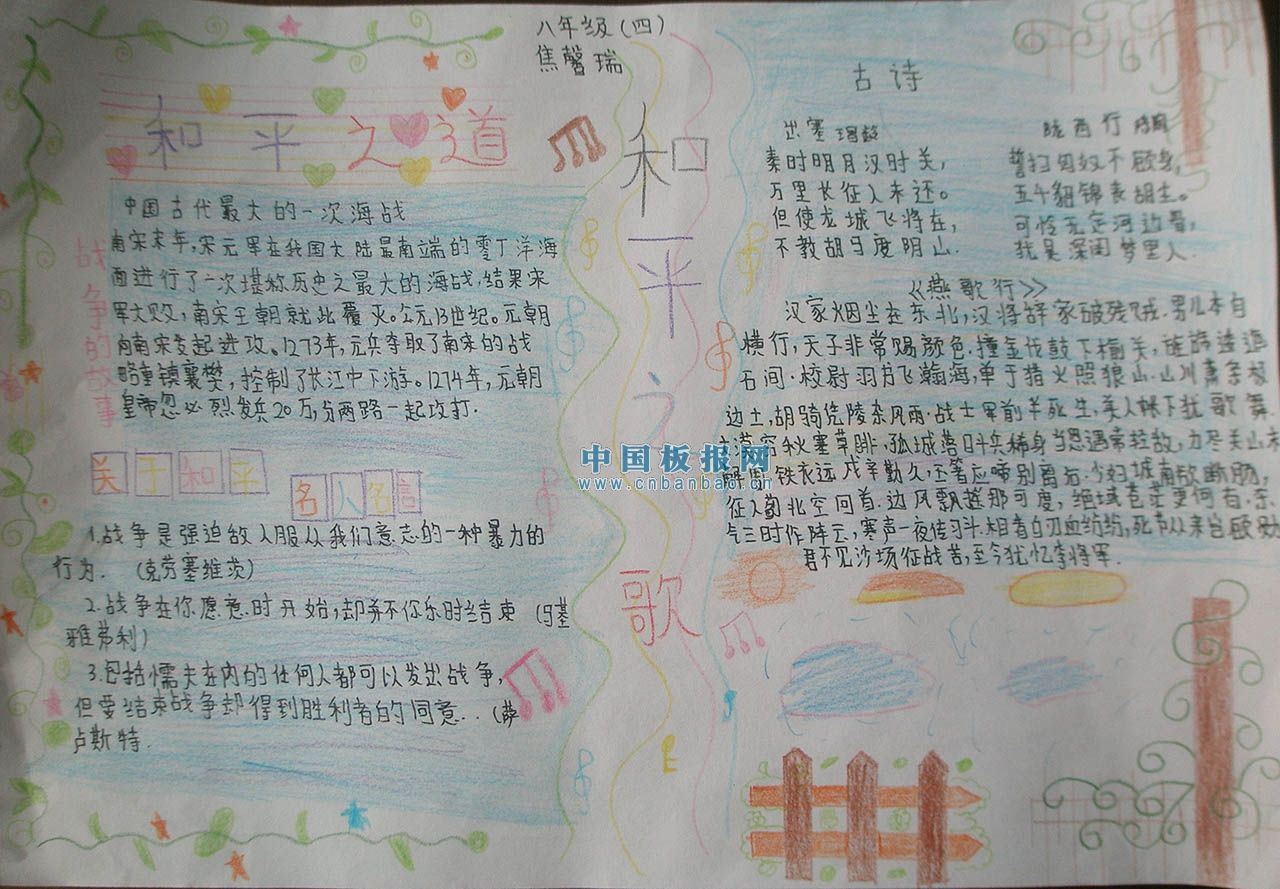 八年级(四)
焦馨瑞
和平之道
战争的故事
中国古代最大的一次海战
南宋末年,宋元军在我国大陆最南端的零丁洋海
面进行了一次堪称历史之最大的海战,结果宋
军大败,南宋王朝就此覆灭。公元13世纪。元朝
向南宋发起进攻。1273年,元兵夺取了南宋的战
略重镇襄樊,控制了长江中下游。1274年,元朝
皇帝忽必烈发兵20万,分两路一起攻打.
关于和平
名人名言
1.战争是强迫敌人服从我们意志的一种暴力的
行为. (克劳塞维茨)
2.战争在你愿意时开始,却并不你乐时结束 (马基
雅弗利)
3.包括懦夫在内的任何人都可以发出战争,
但要结束战争却得到胜利者的同意..(萨
卢斯特.
和平之歌
古诗
出塞
秦时明月汉时关,
万里长征人未还。
但使龙城飞将在,
不教胡马度阴山.
陇西行
誓扫匈奴不顾身,
五千貂锦丧胡尘。
可怜无定河边骨,
犹是深闺梦里人.
《燕歌行》
汉家烟尘在东北,汉将辞家破残贼.男儿本自
横行,天子非常赐颜色.摐金伐鼓下榆关,旌旆逶迤
石间.校尉羽书飞瀚海,单于猎火照狼山.山川萧条极
边土,胡骑凭陵杂风雨.战士军前半死生,美人帐下犹歌舞.
穷秋塞草腓,孤城落日斗兵稀身当恩遇常轻敌,力尽关山未
解围.铁衣远戍辛勤久,玉箸应啼别离后.少妇城南欲断肠,
征人蓟北空回首.边风飘飖那可度,绝域苍茫更何有.杀
气三时作阵云,寒声一夜传刁斗.相看白刃血纷纷,死节从来岂顾勋
君不见沙场征战苦,至今犹忆李将军.
中国板报网
www.cnbanbao.cn